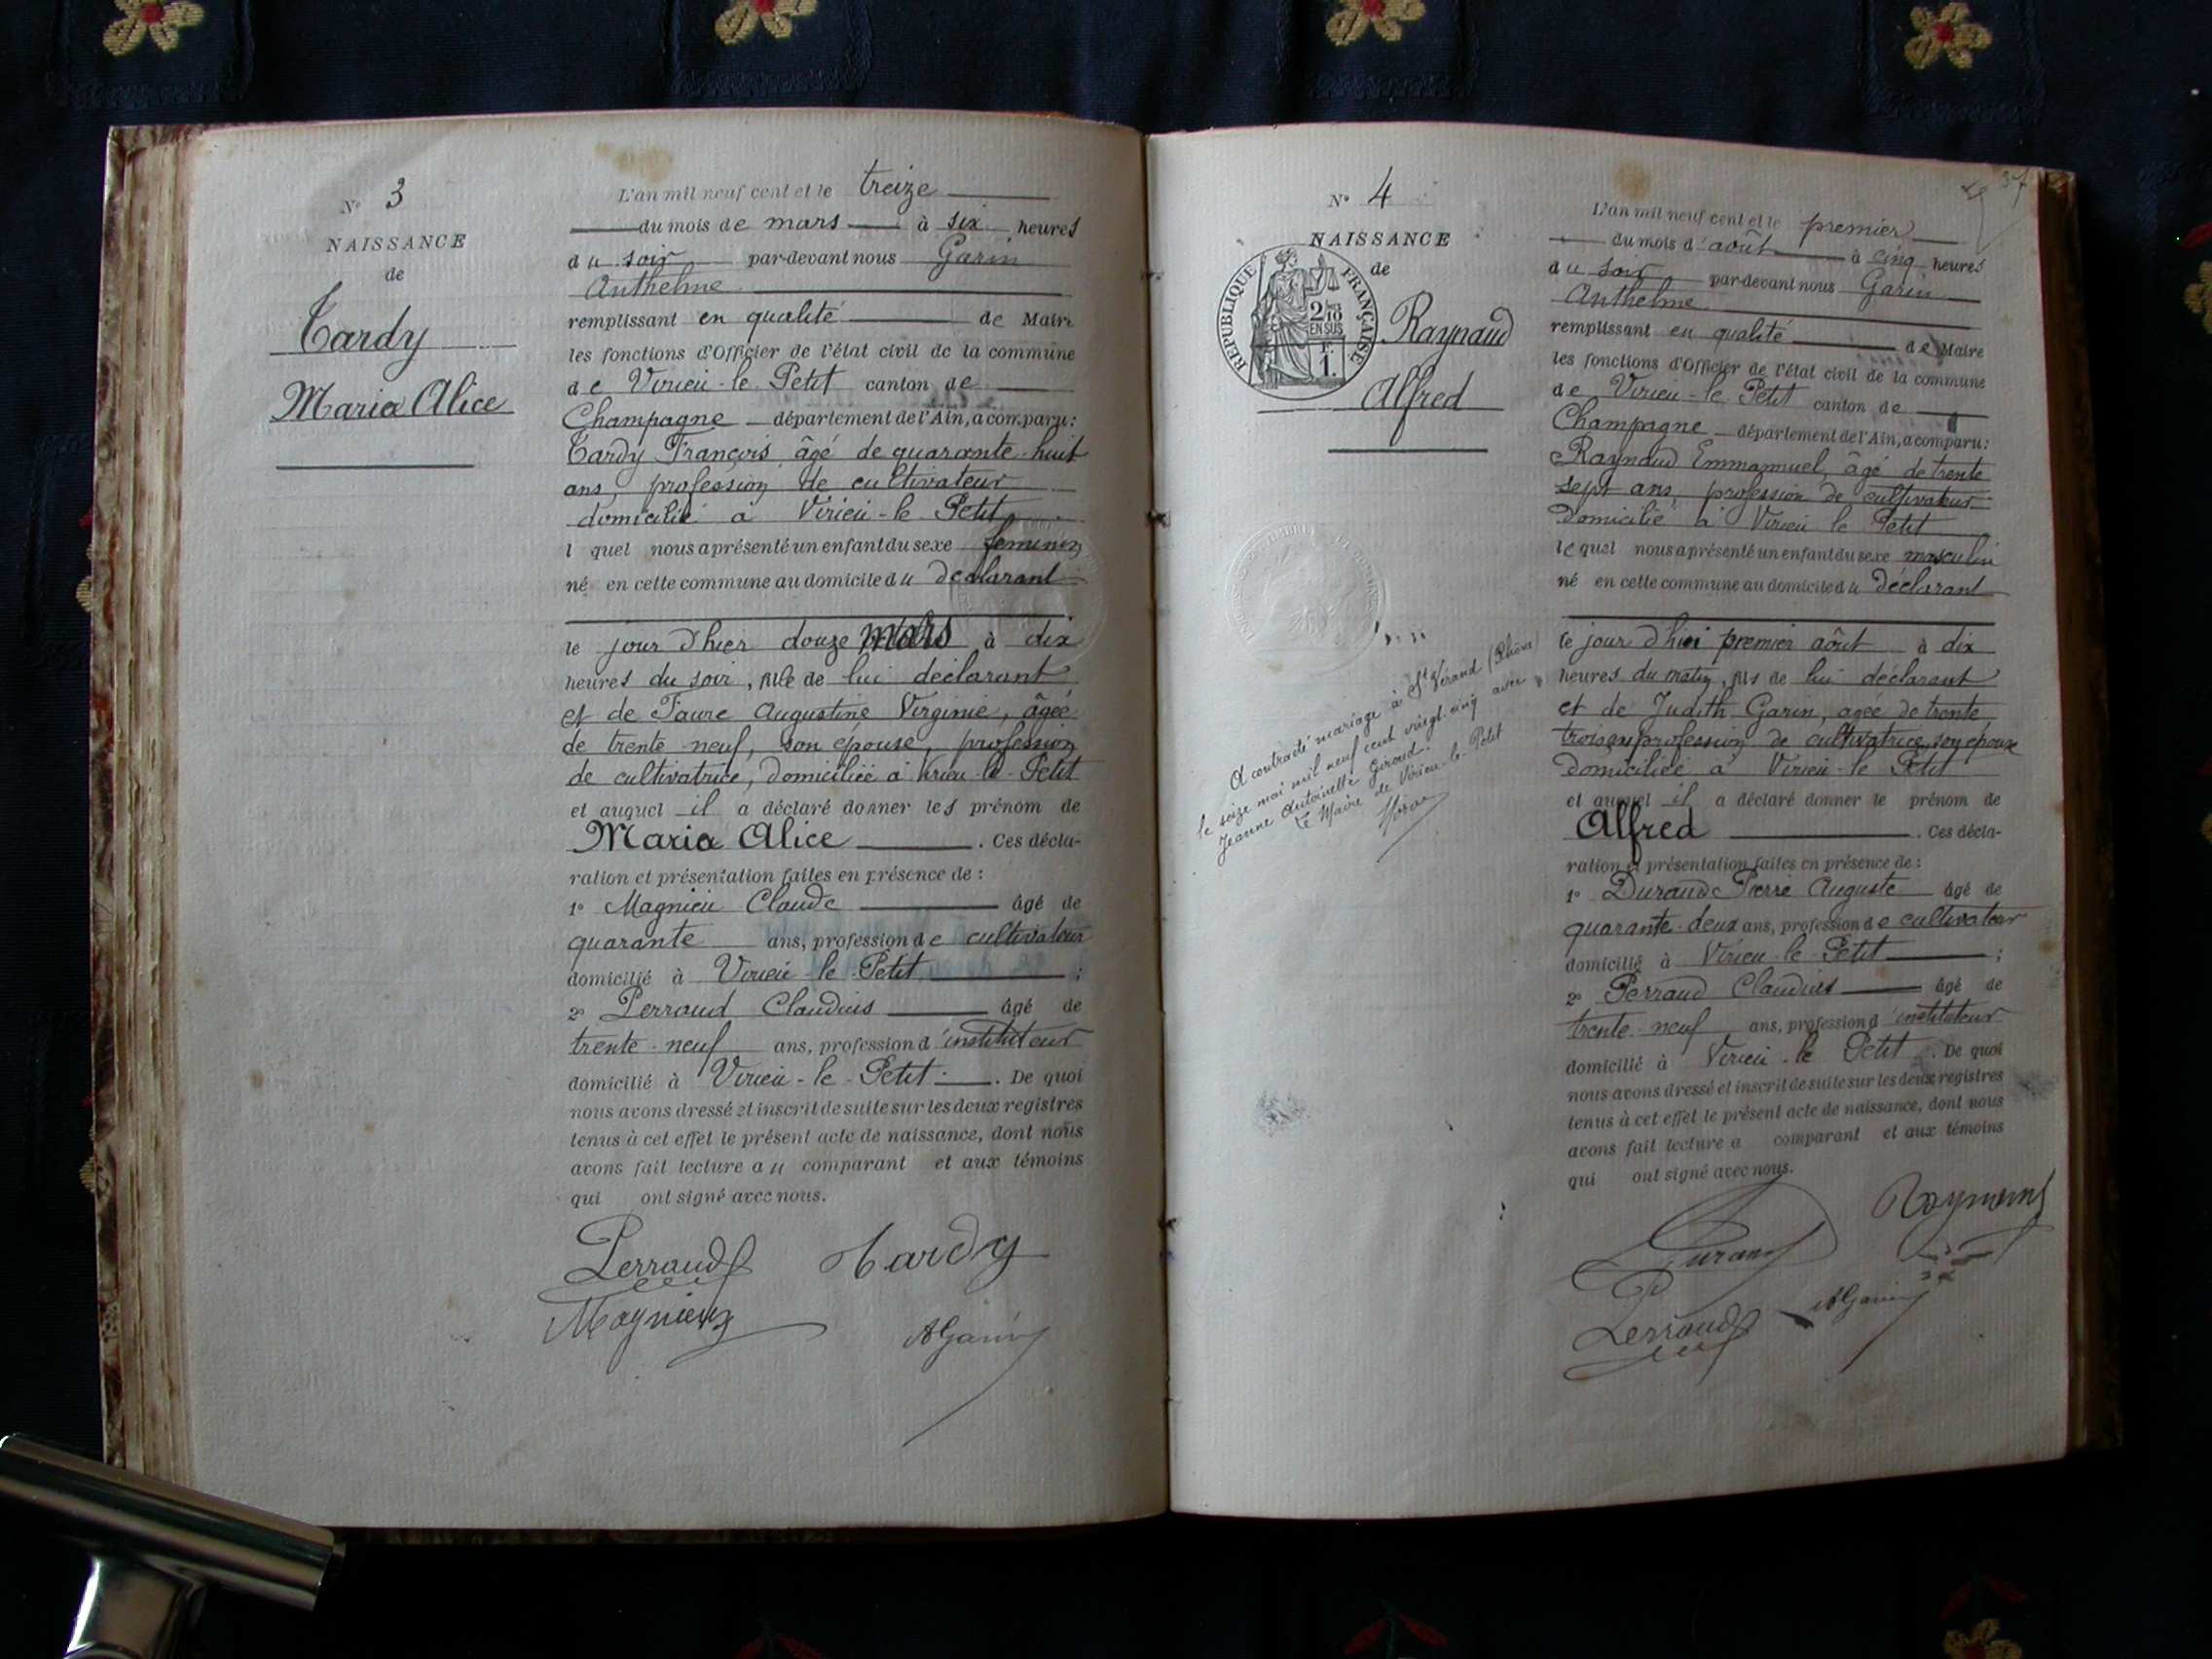 N° 3
NAISSANCE
de
Tardy
Maria Alice
L'an mil neuf cent et le treize
du mois de mars à six heures
du soir par-devant nous Garin
Anthelme
remplissant en qualité de Maire
les fonctions d'Officier de l'état civil de la commune
de Virieu-le-Petit canton de
Champagne département de l'Ain, a comparu:
Tardy François, âgé de quarante-huit
ans, profession de cultivateur
domicilié à Virieu-le-Petit
l quel nous a présenté un enfant du sexe feminin
né en cette commune au domicile du déclarant
le jour d'hier douze mars à dix
heures du soir, fille de lui déclarant
et de Faure Augustine Virginie, âgée
de trente-neuf, son épouse, profession
de cultivatrice, domiciliée à Virieu-le-Petit
et auquel il a déclaré donner les prénom de
Maria Alice . Ces décla-
ration et présentation faites en présence de :
1° Magnieu Claude âgé de
quarante ans, profession de cultivateur
domicilié à Virieu-le-Petit ;
2° Perraud Claudius âgé de
trente-neuf ans, profession d'instituteur
domicilié à Virieu-le-Petit . De quoi
nous avons dressé et inscrit de suite sur les deux registres
tenus à cet effet le présent acte de naissance, dont nous
avons fait lecture au comparant et aux témoins
qui ont signé avec nous.
Perraud Tardy
Magnieu AGarin
N° 4
NAISSANCE
de
REPUBLIQUE FRANÇAISE
2/10
EN SUS
F.
1.
Raynaud
Alfred
A contracté mariage à St Vérand (Rhône)
le seize mai mil neuf cent vingt-cinq avec
Jeanne Antoinette Giroud.
Le Maire de Virieu-le-Petit
37
L'an mil neuf cent et le premier
du mois d'août à cinq heures
du soir par-devant nous Garin
Anthelme
remplissant en qualité de Maire
les fonctions d'Officier de l'état civil de la commune
de Virieu-le-Petit canton de
Champagne département de l'Ain, a comparu:
Raynaud Emmanuel, âgé de trente
sept ans, profession de cultivateur
domicilié à Virieu le Petit
lequel nous a présenté un enfant du sexe masculin
né en cette commune au domicile du déclarant
le jour d'hui premier août à dix
heures du matin, fils de lui déclarant
et de Judith Garin, agée de trente
trois ans profession de cultivatrice, son epouse
domiciliée à Virieu-le Petit
et auquel il a déclaré donner le prénom de
Alfred . Ces décla-
ration et présentation faites en présence de :
1° Durand Pierre Auguste âgé de
quarante-deux ans, profession de cultivateur
domicilié à Virieu-le-Petit ;
2° Perraud Claudius âgé de
trente-neuf ans, profession d'instituteur
domicilié à Virieu-le Petit . De quoi
nous avons dressé et inscrit de suite sur les deux registres
tenus à cet effet le présent acte de naissance, dont nous
avons fait lecture a comparant et aux témoins
qui ont signé avec nous.
Raynaud
Durand
Perraud AGarin